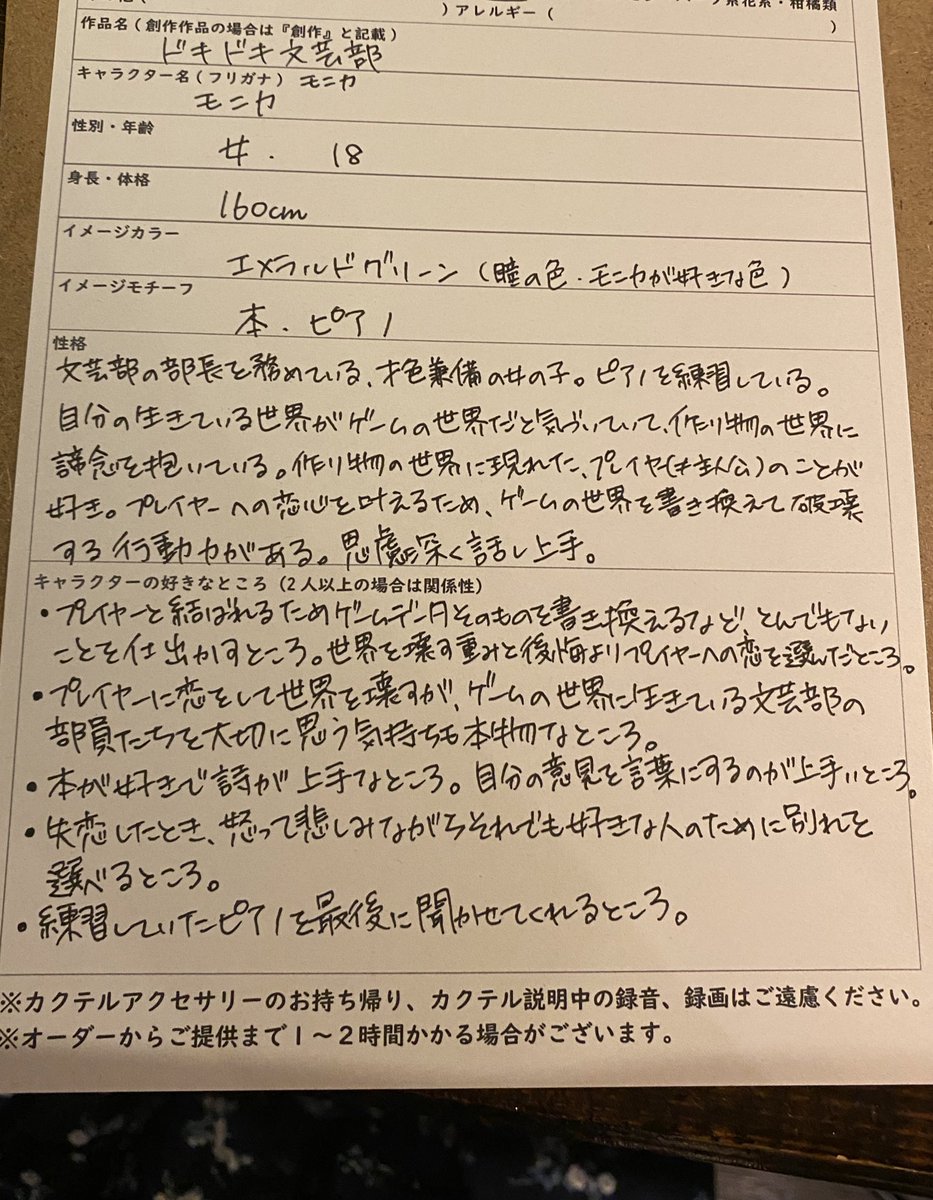 )アレルギー(
系花系・柑橘類
)
作品名(創作作品の場合は『創作』と記載)
ドキドキ文芸部
キャラクター名(フリガナ) モニカ
モニカ
性別・年齢
女. 18
身長・体格
160cm
イメージカラー
エメラルドグリーン(瞳の色・モニカが好きな色)
イメージモチーフ
本・ピアノ
性格
文芸部の部長を務めている、才色兼備の女の子。ピアノを練習している。
自分の生きている世界がゲームの世界だと気づいていて、作り物の世界に
諦念を抱いている。作り物の世界に現れた、プレイヤー(≠主人公)のことが
好き。プレイヤーへの恋心を叶えるため、ゲームの世界を書き換えて破壊
する行動力がある。思慮深く話し上手。
キャラクターの好きなところ(2人以上の場合は関係性)
・プレイヤーと結ばれるためゲームデータそのものを書き換えるなど、とんでもない
ことを仕出かすところ。世界を壊す重みと後悔よりプレイヤーへの恋を選んだところ。
・プレイヤーに恋をして世界を壊すが、ゲームの世界に生きている文芸部の
部員たちを大切に思う気持ちも本物なところ。
・本が好きで詩が上手なところ。自分の意見を言葉にするのが上手いところ。
・失恋したとき、怒って悲しみながらそれでも好きな人のために別れを
選べるところ。
・練習していたピアノを最後に聞かせてくれるところ。
※カクテルアクセサリーのお持ち帰り、カクテル説明中の録音、録画はご遠慮ください。
※オーダーからご提供まで1〜2時間かかる場合がございます。